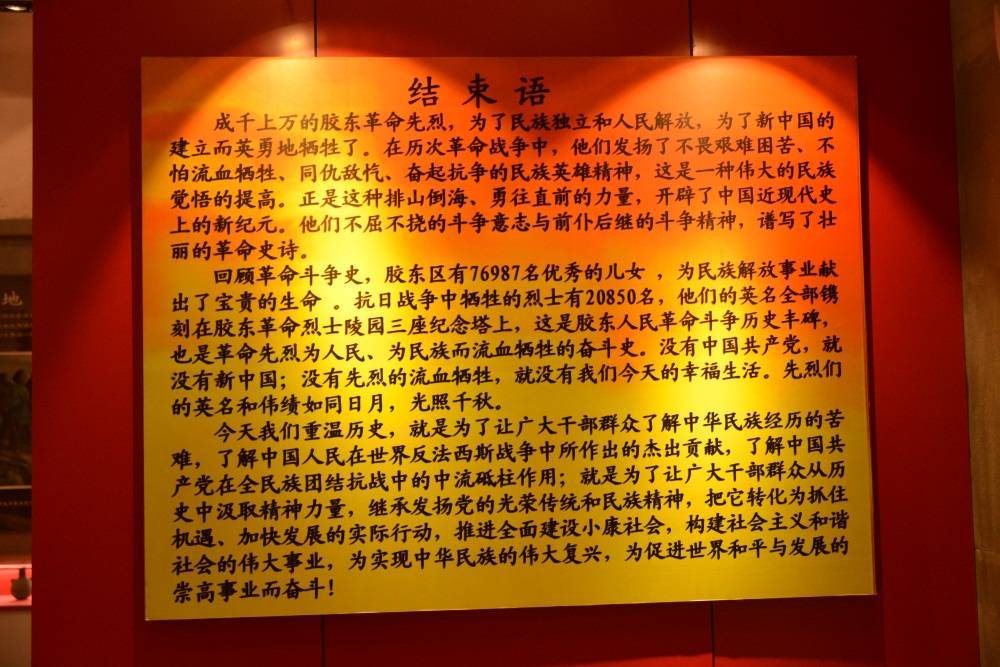 结束语
成千上万的胶东革命先烈，为了民族独立和人民解放，为了新中国的
建立而英勇地牺牲了。在历次革命战争中，他们发扬了不畏艰难困苦、不
怕流血牺牲、同仇敌忾、奋起抗争的民族英雄精神，这是一种伟大的民族
觉悟的提高。正是这种排山倒海、勇往直前的力量，开辟了中国近现代史
上的新纪元。他们不屈不挠的斗争意志与前仆后继的斗争精神，谱写了壮
丽的革命史诗。
回顾革命斗争史，胶东区有76987名优秀的儿女 ，为民族解放事业献
出了宝贵的生命 。抗日战争中牺牲的烈士有20850名，他们的英名全部镌
刻在胶东革命烈士陵园三座纪念塔上，这是胶东人民革命斗争历史丰碑，
也是革命先烈为人民、为民族而流血牺牲的奋斗史。没有中国共产党，就
没有新中国；没有先烈的流血牺牲，就没有我们今天的幸福生活。先烈们
的英名和伟绩如同日月，光照千秋。
今天我们重温历史，就是为了让广大干部群众了解中华民族经历的苦
难，了解中国人民在世界反法西斯战争中所作出的杰出贡献，了解中国共
产党在全民族团结抗战中的中流砥柱作用；就是为了让广大干部群众从历
史中汲取精神力量，继承发扬党的光荣传统和民族精神，把它转化为抓住
机遇、加快发展的实际行动，推进全面建设小康社会，构建社会主义和谐
社会的伟大事业，为实现中华民族的伟大复兴，为促进世界和平与发展的
崇高事业而奋斗！
地